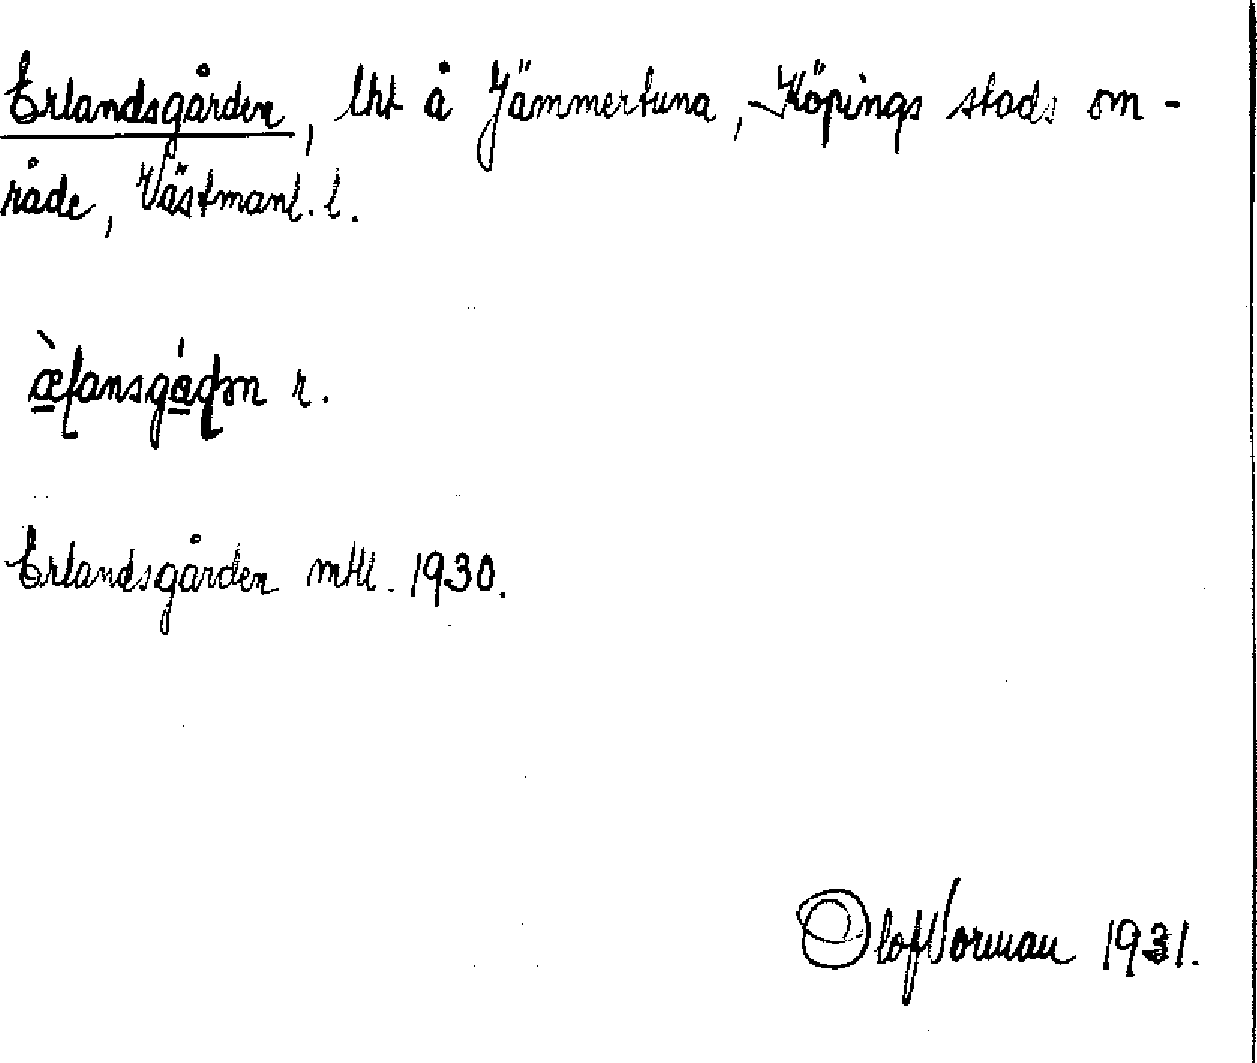 Erlandsgården, lht å Jämmertuna, Köpings stads om-
råde, Västmanl. l.
r.
Erlandsgården mtl. 1930.
Olof Norman 1931.